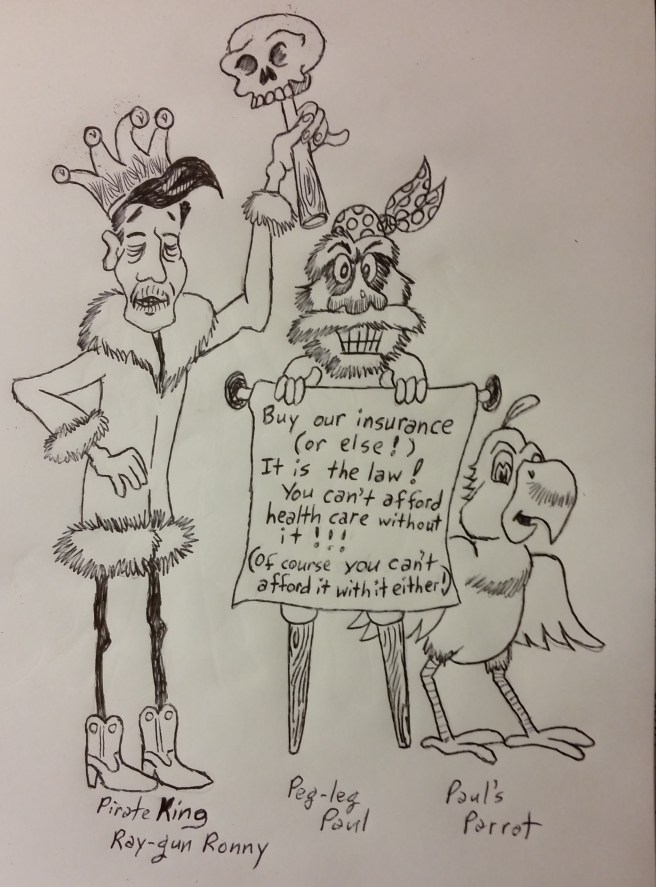 Buy our insurance
(or else!)
It is the law!
You can't afford
health care without
it!!!
(Of course you can't
afford it with it either!)
Pirate King
Ray-gun Ronny
Peg-leg
Paul
Paul's
Parrot